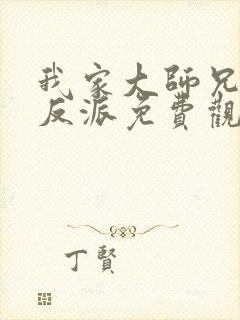 我家大師兄
反派免費觀
丁賢